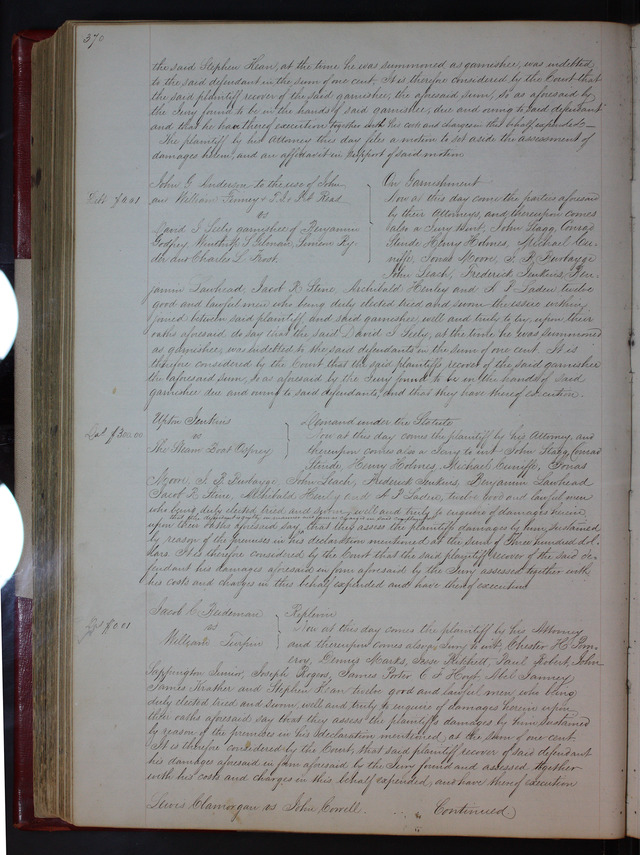 370
the said Stephen Kean, at the time he was summoned as garnishee, was indebted
to the said defendant in the sum of one cent. It is therefore considered by the Court that
the said plaintiff recover of the said garnishee, the aforesaid sum, so as aforesaid by
the Jury found to be in the hands of said garnishee, due and owing to said defendant
and that he have thereof execution together with his costs and charges in this behalf expended.
The plaintiff by his Attorney this day files a motion to set aside the assessment of
damages herein, and an affidavit in support of said motion
John G Anderson to the use of John
an William Finney & P. & R. A Read
vs
David J Seely garnishee of Benjamin
Godfrey Winthrop S Gilman, Simeon Ry-
der and Charles L Frost
Debt $0.01
On Garnishment
Now at this day come the parties aforesaid
by their Attorneys, and thereupon comes
also a Jury to wit, John Stagg, Conrad
Stende Henry Holmes, Michael Cu-
niffe, Jonas Moore, S. P. Burbayge
John Leach, Frederick Jenkins, Ben-
jamin Lawhead, Jacob R Stine, Archibald Henley and A P Laden, twelve
good and lawful men who being duly elected tried and sworn the issue within
joined between said plaintiff and said garnishee well and truly to try, upon their
oaths aforesaid do say that the said David J Seely, at the time he was summoned
as garnishee, was indebted to the said defendants in the sum of one cent. It is
therefore considered by the Court that the said plaintiffs recover of the said garnishee
the aforesaid sum, so as aforesaid by the Jury found to be in the hands of said
garnishee due and owing to said defendants, and that they have thereof execution.
Upton Jenkins
vs
The Steam Boat Osprey
Dbt $300.00
Demand under the Statute
Now at this day comes the plaintiff by his Attorney, and
thereupon comes also a Jury to wit John Stagg, Conrad
Stende, Henry Holmes, Michael Cuniffe, Jonas
Moore, S. P. Burbayge, John Leach, Frederick Jenkins, Benjamin Lawhead
Jacob R Stine, Archibald Henley and A P Laden, twelve good and lawful men
who being duly elected tried and sworn, well and truly to enquire of damages herein
upon their oaths aforesaid say, that they assess the plaintiff damages by him sustained
by reason of the premises in his declaration mentioned at the sum of Three hundred dol-
lars. It is therefore considered by the Court that the said plaintiff recover of the said de-
fendant his damages aforesaid in form aforesaid by the Jury assessed together with
his costs and charges in this behalf expended and have thereof execution
Jacob C Bredeman
vs
William Turpin
$0.01
Replevin
Now at this day comes the plaintiff by his Attorney
and thereupon comes also a Jury to wit, Chester H Pom-
eroy, Dennis Marks, Jesse Kitchell, Paul Robert, John
Sappington Junior, Joseph Rogers, James Porter C F Hoyt, Abel Janney
James Mather and Stephen Kean twelve good and lawful men, who being
duly elected tried and sworn, well and truly to enquire of damages herein upon
their oaths aforesaid say that they assess the plaintiffs damages by him sustained
by reason of the premises in his declaration mentioned, at the sum of one cent.
It is therefore considered by the Court, that said plaintiff recover of said defendant
his damage aforesaid in form aforesaid by the Jury found and assessed together
with his costs and charges in this behalf expended, and have thereof execution
Lewis Clamorgan vs John Cowell. Continued